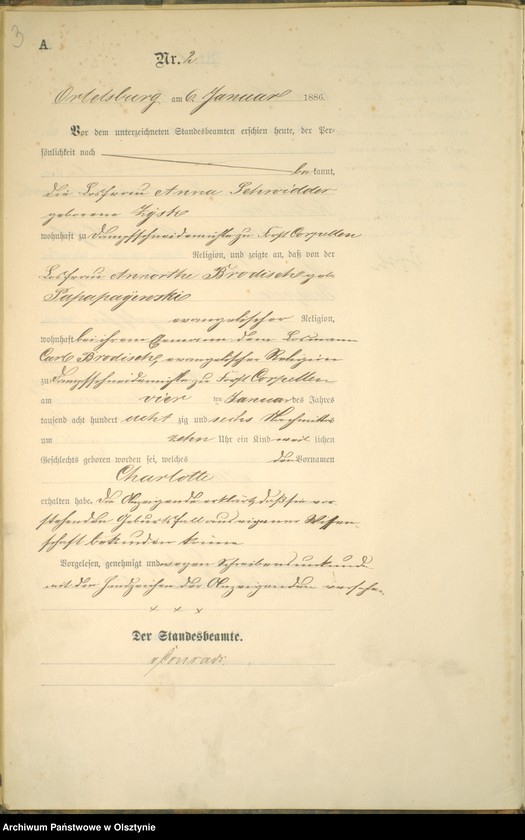 3
A.
Nr. 2
Ortelsburg am 6 Januar 1886.
Vor dem unterzeichneten Standesbeamten erschien heute, der Per-
sönlichkeit nach
bekannt,
die Losfrau Anna Schwidder
geborene Zysk
wohnhaft zu Dampfschneidemühle zu Forst Corpellen
Religion, und zeigte an, daß von der
Losfrau Annorthe Brodisch geb.
evangelischer Religion,
wohnhaft bei ihrem Ehemann dem Losmann
Carl Brodisch, evangelischer Religion
zu Dampfschneidemühle zu Forst Corpellen
am vier ten Januar des Jahres
tausend acht hundert acht zig und sechs Nachmittags
um zehn Uhr ein Kind weib lichen
Geschlechts geboren worden sei, welches den Vornamen
Charlotte
erhalten habe. Die Anzeigende erklärt, daß sie vor-
stehenden Geburtsfall aus eigener Wissen-
schaft bekunden könne
Vorgelesen, genehmigt und wegen Schreibensunkunde
mit den Handzeichen der Anzeigenden versehen
x x x
Der Standesbeamte.
Conradi.
Archiwum Państwowe w Olsztynie